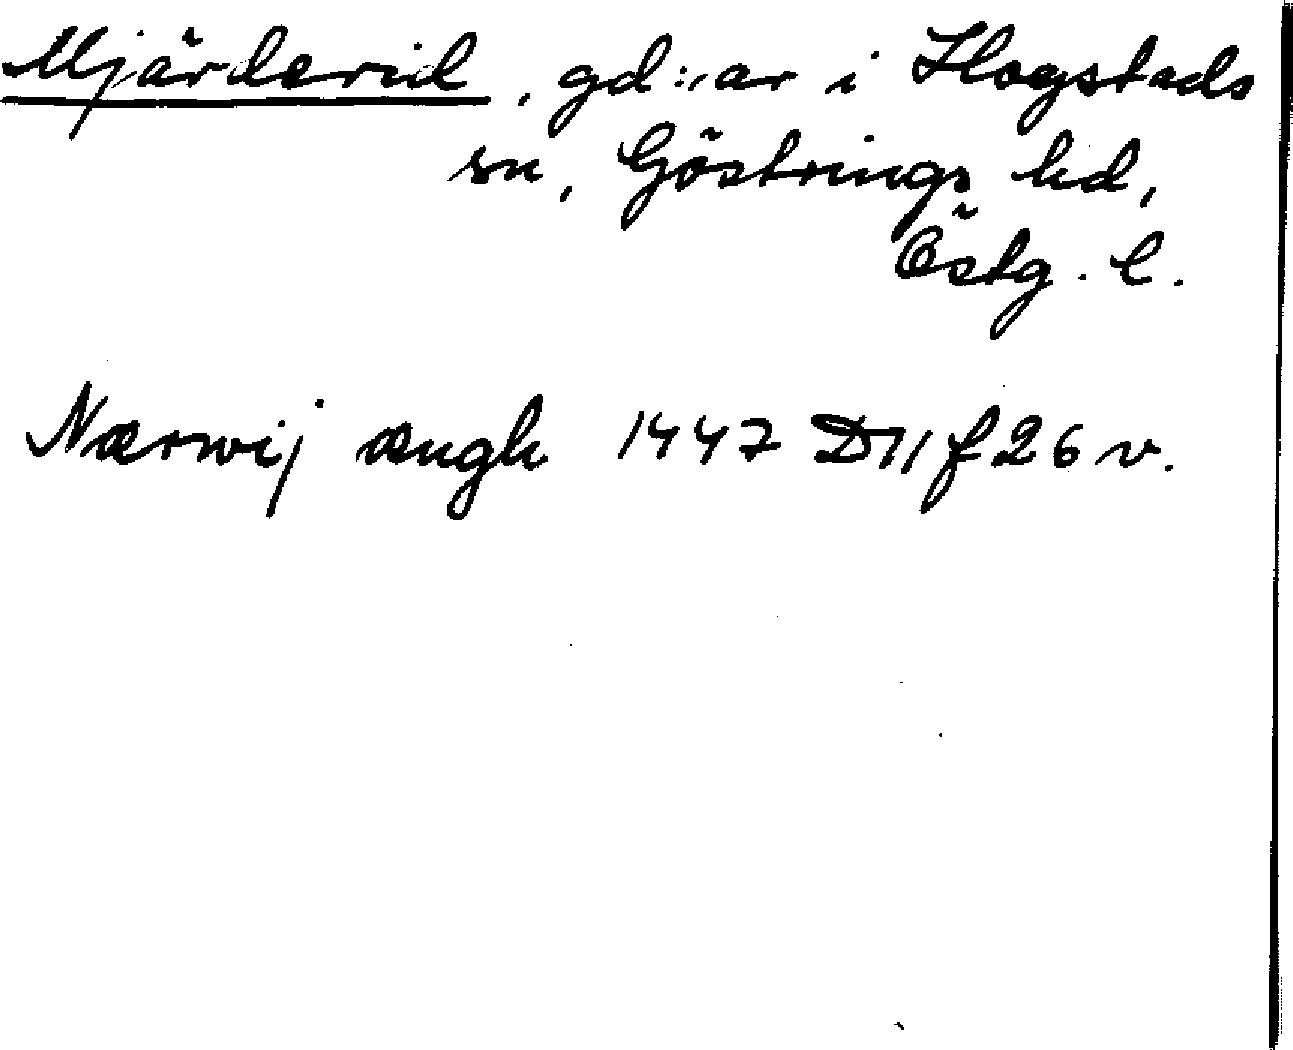 Mjärderid, gd:ar i Hogstads
sn, Göstrings hd,
Östg. l.
Nærwij ængh 1447 D11 f 26 v.